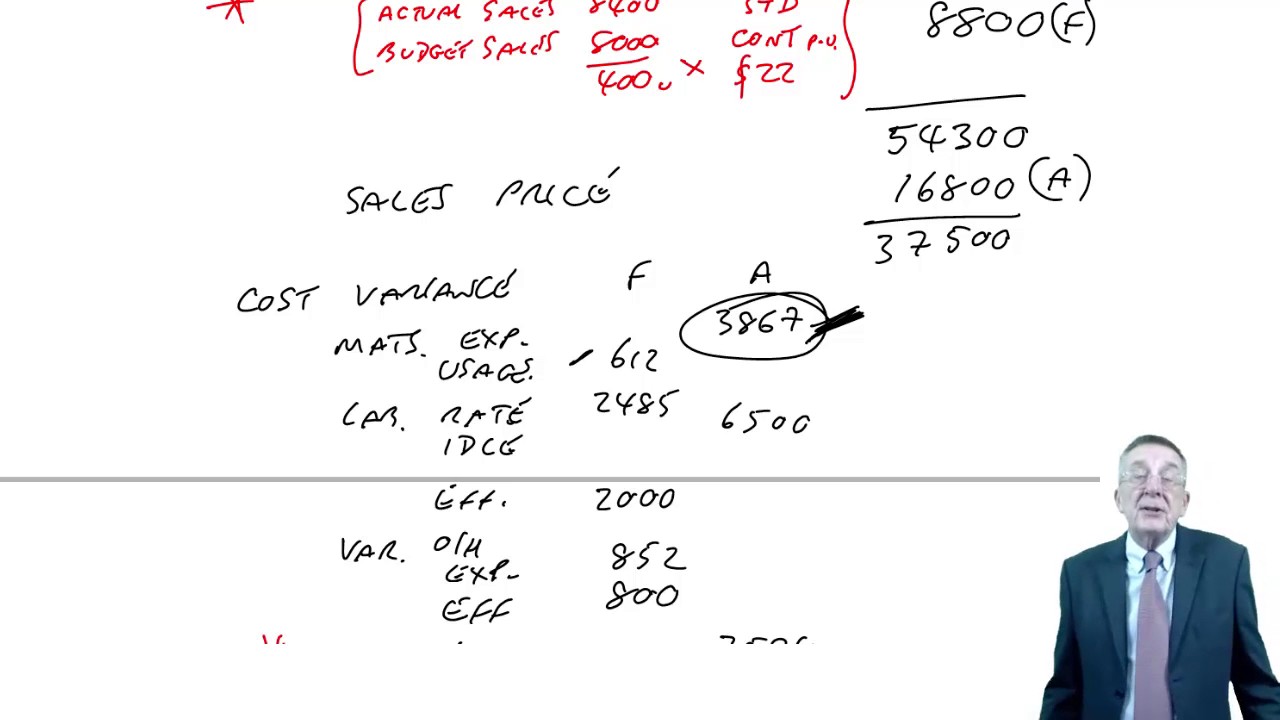 ACTUAL SALES 8400 STD
BUDGET SALES 8000 CONT p.u.
400u × $22
8800 (F)
54300
SALES PRICE 16800 (A)
37500
COST VARIANCE F A
MATS. EXP. 3867
USAGE. 612
LAB. RATE 2485
IDLE 6500
EFF. 2000
VAR. O/H
EXP. 852
EFF 800